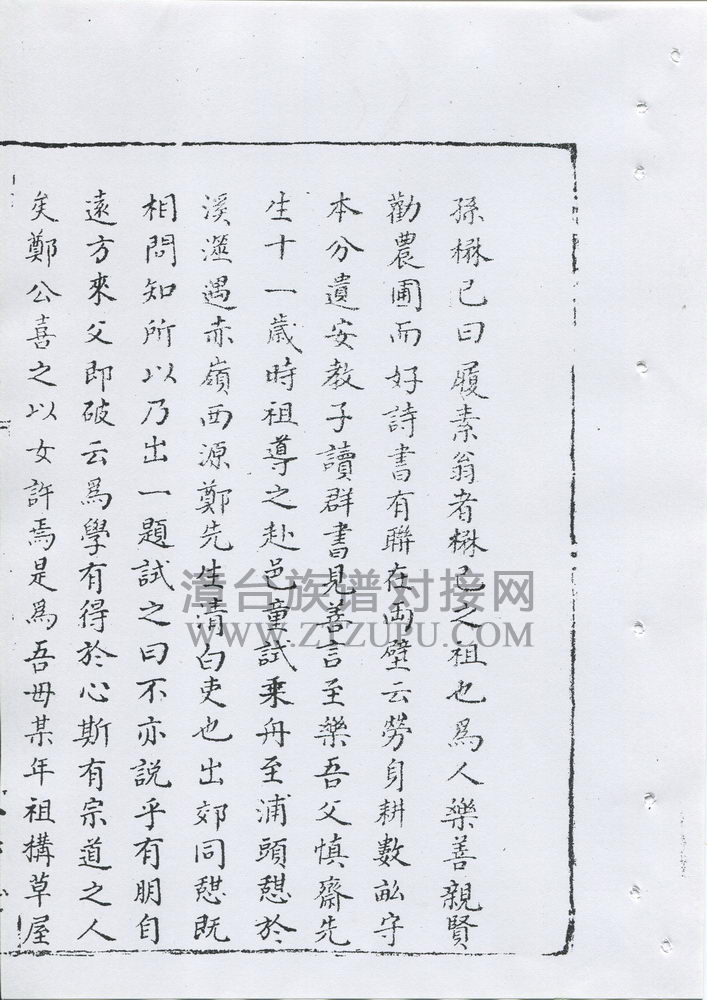 孫楙已曰履素翁者楙已之祖也爲人樂善親賢
勸農圃而好詩書有聯在両壁云勞身耕數畝守
本分遺安教子讀群書見善言至樂吾父慎齋先
生十一歲時祖導之赴邑童試乘舟至浦頭憇於
溪滋遇赤嶺西源鄭先生清白吏也出郊同憇既
相問知所以乃出一題試之曰不亦説乎有朋自
遠方來父即破云爲學有得於心斯有宗道之人
矣鄭公喜之以女許焉是爲吾毋某年祖搆草屋
漳台族谱对接网
WWW.ZTZUPU.COM